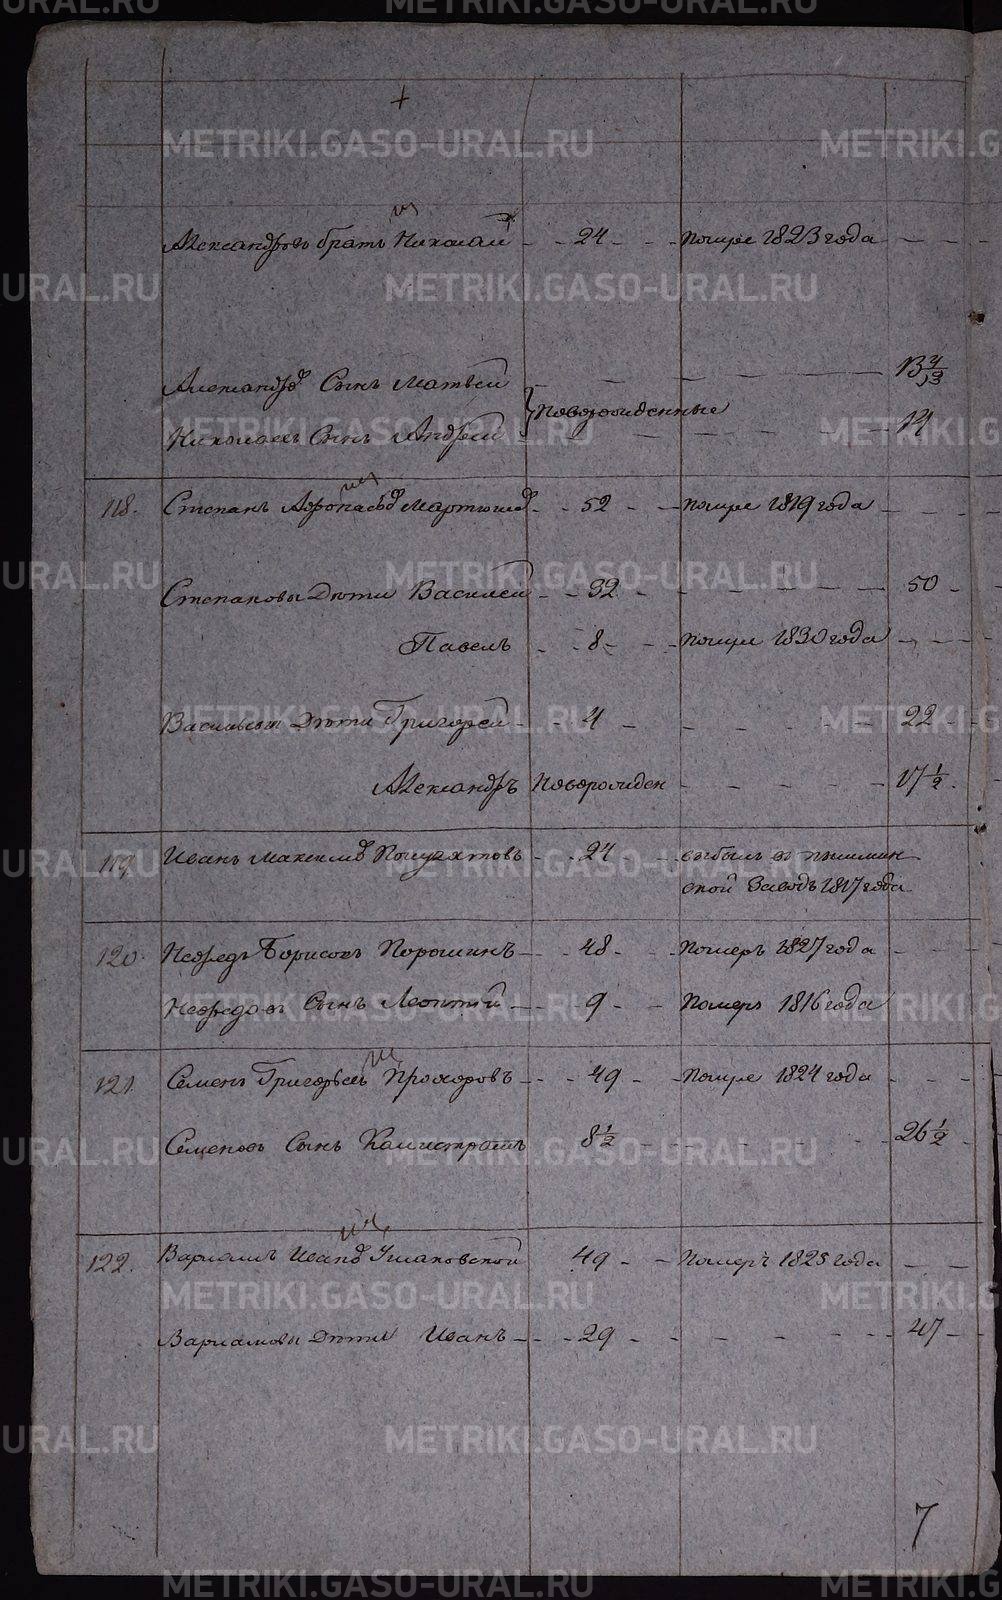 Александровъ братъ Николай - - 24 - - помре 1823 года - - -
Александров Сынъ Матвей - - - - - 13
Новорожденные
Николаевъ Сынъ Андрей - - - - - 14
118. Степанъ Афонасьев Мартюшев - - 52 - - помре 1819 года - - -
Степановы Дети Василей - - 32 - - - - - 50 -
Павелъ - - 8 - - помре 1830 года - - -
Васильевы Дети Григорей - - 4 - - - - - 22 - -
Александръ Новорожден - - - - 17 1/2 -
119. Иванъ Максимов - - 24 - - выбылъ в пышмин
ской Заводъ 1817 года
120. Нефедъ Борисовъ Порошинъ - - 48 - - Померъ 1827 года - - -
Нефедовъ Сынъ Леонтей - - 9 - - Померъ 1816 года - - -
121. Семенъ Григорьевъ Прохоровъ - - 49 - - помре 1824 года - - -
Семеновъ Сынъ Калистратъ 8 1/2 - - - - - 26 1/2 -
122. Варламъ Иванов Ушаковской 49 - - Померъ 1825 года - -
Варламовы Дети Иванъ - - 29 - - - - - 47 - -
7
METRIKI.GASO-URAL.RU